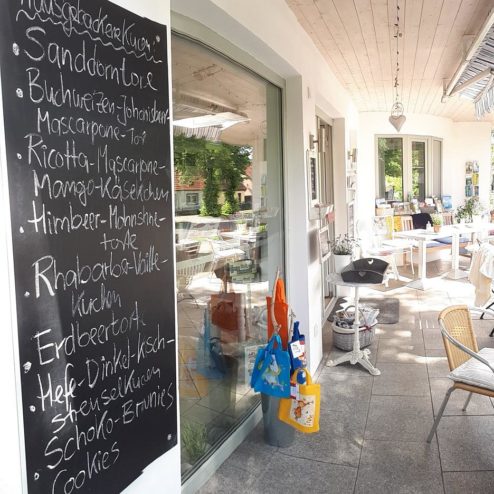 Hausgebackene Kuchen
Sanddorntorte
Buchweizen-Johannisbeer
Mascarpone-Torte
Ricotta-Mascarpone-
Mango-Käsekuchen
Himbeer-Mohnsahne-
torte
Rhabarber-Vanille-
Kuchen
Erdbeertorte
Hefe-Dinkel-Kirsch-
streuselkuchen
Schoko-Brownies
Cookies